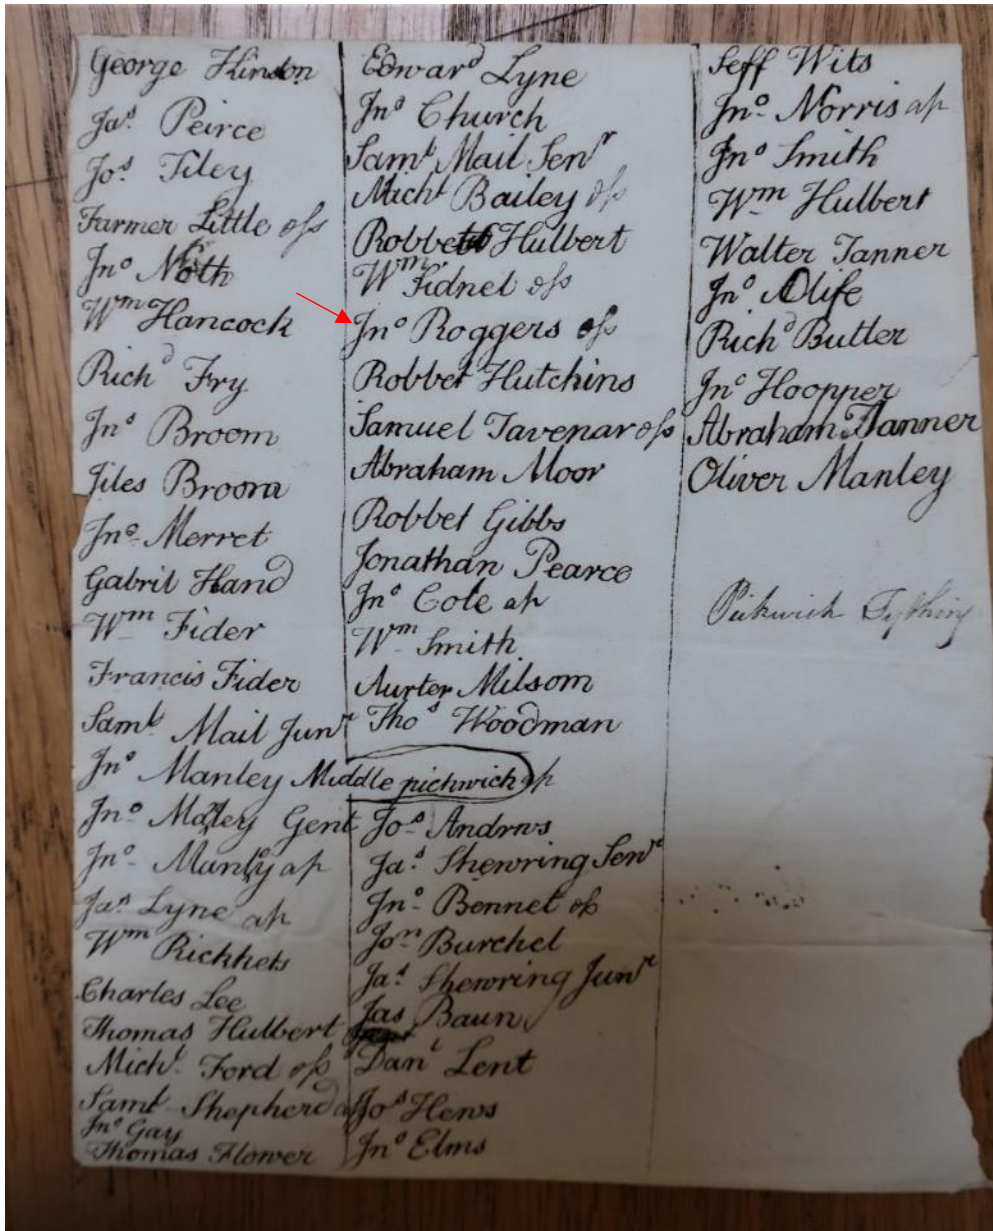 George Hinton
Jaˢ Peirce
Joˢ Tiley
Farmer Little ofs
Jnº Noth
Wᵐ Hancock
Richᵈ Fry
Jnº Broom
Jiles Broom
Jnº Merret
Gabril Hand
Wᵐ Fider
Francis Fider
Samˡ Mail Junʳ
Jnº Manley Middle pichwich ap
Jnº Maley Gent
Jnº Manley ap
Jaˢ Lyne ap
Wᵐ Rickhets
Charles Lee
Thomas Hulbert
Michˡ Ford ofs
Samˡ Shepherd
Jnº Gay
Thomas Flower
Edwarᵈ Lyne
Jnº Church
Samˡ Mail Senʳ
Michˡ Bailey ofs
Robbet Hulbert
Wᵐ Fidnel ofs
Jnº Roggers ofs
Robbet Hutchins
Samuel Tavenar ofs
Abraham Moor
Robbet Gibbs
Jonathan Pearce
Jnº Cole ap
Wᵐ Smith
Aurter Milsom
Thoˢ Woodman
Joˢ Andrws
Jaˢ Shewring Senʳ
Jnº Bennet ofs
Joⁿ Burchel
Jaˢ Shewring Junʳ
Jas Baun
Danˡ Lent
Joˢ Hews
Jnº Elms
Jeff Wits
Jnº Norris ap
Jnº Smith
Wᵐ Hulbert
Walter Tanner
Jnº Olife
Richᵈ Butler
Jnº Hoopper
Abraham Tanner
Oliver Manley
Pickwick Tything